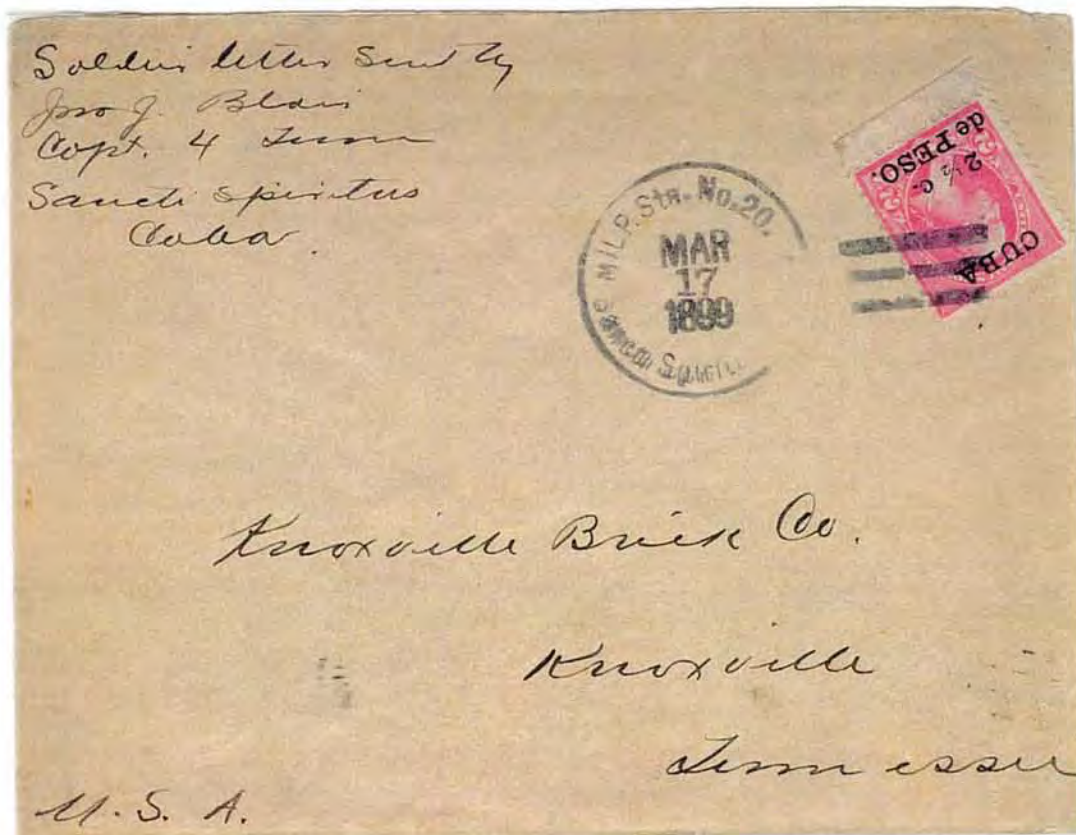 Soldier's letter Send by
Jno J. Blair
Capt. 4 Tenn
Sancti Spiritus
Cuba.
MIL. P. Sta. No. 20.
MAR
17
1899
CUBA
2½ c.
de PESO.
Knoxville Brick Co.
Knoxville
Tennessee
U.S.A.